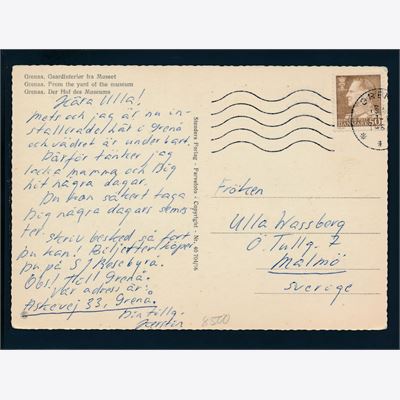 Grenaa. Gaardinteriør fra Museet
Grenaa. From the yard of the museum
Grenaa. Der Hof des Museums
Kära Ulla!
Mor och jag är nu in-
stallerade här i Grenå
och vädret är underbart.
Därför tänker jag
locka mamma och Dig
hit några dagar.
Du kan säkert taga
Dig några dagars semes-
ter.
Skriv besked så fort
Du kan. Biljetter köper
Du på SJ Resebyrå.
Obs! Håll Grenå.
Vår adress är:
Åstrevej 33, Grenå.
Din tillg.
Kerstin
Stenders Forlag - Copyright Nr.
Fröken
Ulla Wassberg
Ö. Tullg. 7
Malmö
Sverige
8500